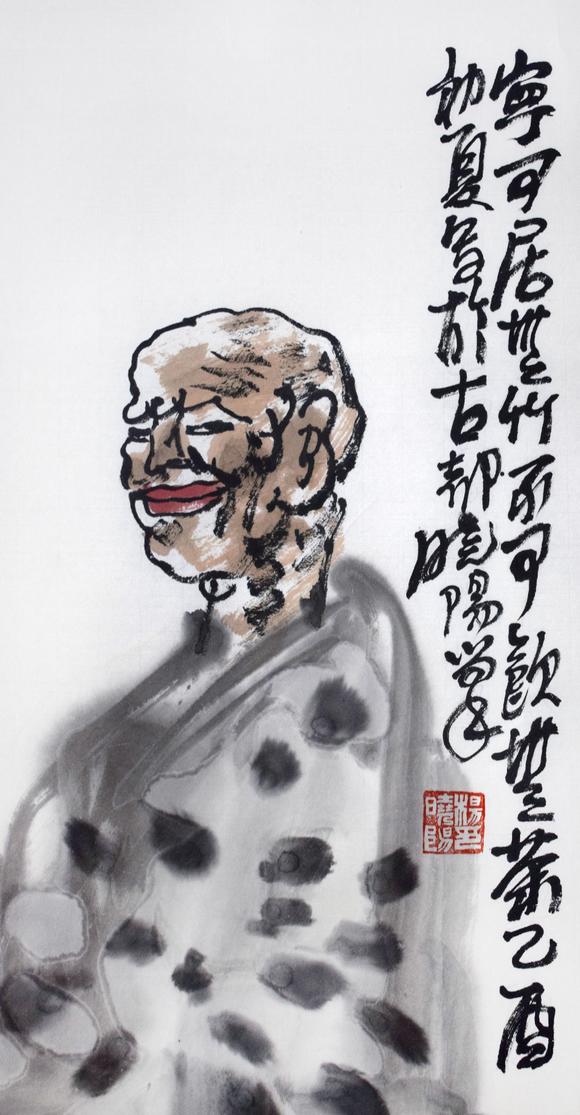 寧可居無竹不可飲無茶乙酉
初夏寫於古都曉陽
楊
曉陽